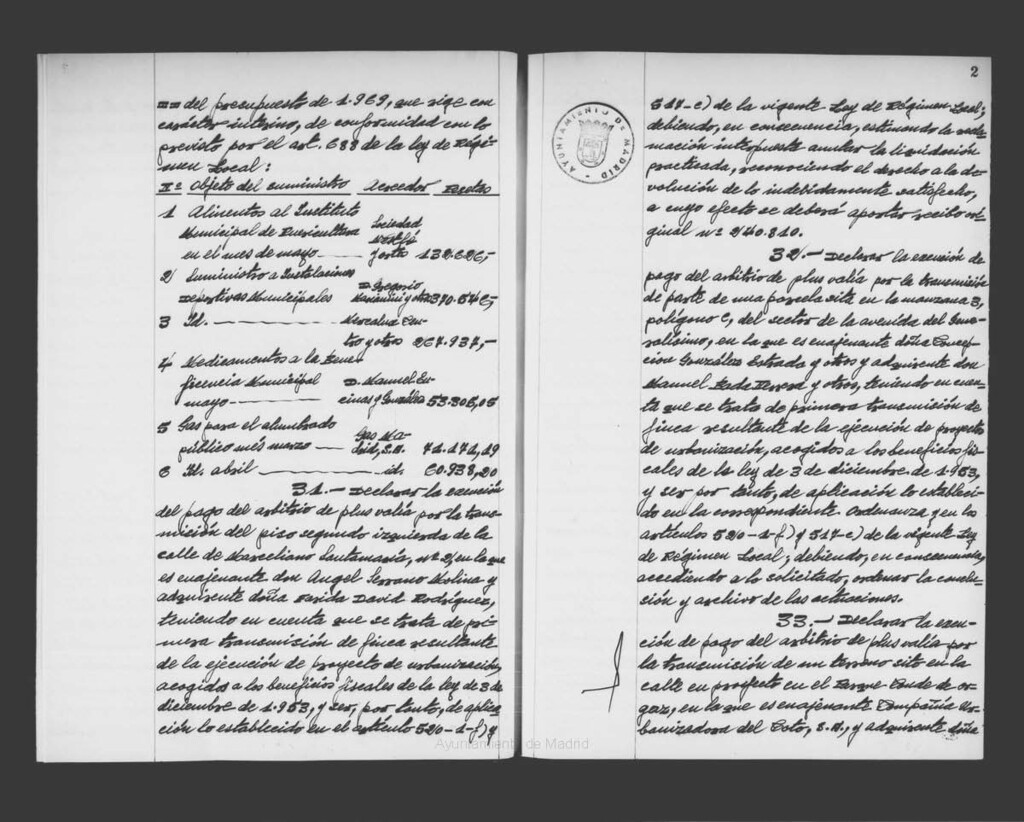 == del presupuesto de 1.969, que rige con
carácter interino, de conformidad con lo
previsto por el art. 688 de la ley de Régi-
men Local:
Nº Objeto del suministro Acreedor Pesetas
1 Alimentos al Instituto
Municipal de Puericultura Sociedad
en el mes de mayo 132.626,-
2 Suministro a Instalaciones
Deportivas Municipales D. Gregorio
Mariantini y otros 370.546,-
3 Id. Mercedes Cas-
tro y otros 267.937,-
4 Medicamentos a la Bene-
ficencia Municipal D. Manuel En-
mayo cinas y González 53.306,05
5 Gas para el alumbrado
público mes marzo Gas Ma-
drid, S.A. 71.171,19
6 Id. abril id. 60.938,20
31.- Declarar la exención
del pago del arbitrio de plus valía por la trans-
misión del piso segundo izquierda de la
calle de Marceliano Santamaría, nº 9, en la que
es enajenante don Angel Serrano Molina y
adquirente doña Farida David Rodríguez,
teniendo en cuenta que se trata de pri-
mera transmisión de finca resultante
de la ejecución de proyecto de urbanización,
acogidos a los beneficios fiscales de la ley de 3 de
diciembre de 1.953, y ser, por tanto, de aplica-
ción lo establecido en el artículo 520-1-f) y
2
517-c) de la vigente Ley de Régimen Local;
debiendo, en consecuencia, estimando la recla-
mación interpuesta anular la liquidación
practicada, reconociendo el derecho a la de-
volución de lo indebidamente satisfecho,
a cuyo efecto se deberá aportar recibo ori-
ginal nº 240.810.
32.- Declarar la exención de
pago del arbitrio de plus valía por la transmisión
de parte de una parcela sita en la manzana B,
polígono C, del sector de la avenida del Gene-
ralísimo, en la que es enajenante doña Concep-
ción González Estrada y otros y adquirente don
Manuel Herrera y otros, teniendo en cuen-
ta que se trata de primera transmisión de
finca resultante de la ejecución de proyecto
de urbanización, acogidos a los beneficios fis-
cales de la ley de 3 de diciembre de 1.953,
y ser por tanto, de aplicación lo estableci-
do en la correspondiente Ordenanza y en los
artículos 520-1-f) y 517-c) de la vigente Ley
de Régimen Local; debiendo, en consecuencia,
accediendo a lo solicitado, ordenar la conclu-
sión y archivo de las actuaciones.
33.- Declarar la exen-
ción de pago del arbitrio de plus valía por
la transmisión de un terreno sito en la
calle en proyecto en el Parque Conde de Or-
gaz, en la que es enajenante Compañía Ur-
banizadora del Coto, S.A., y adquirente doña
AYUNTAMIENTO DE MADRID
Ayuntamiento de Madrid